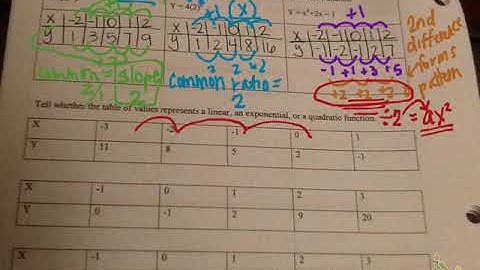 Y = x²+2x – 1
+1
(x)
2nd
difference
forms
pattern
X -2 -1 0 1 2
Y 1 3 5 7 9
X -2 -1 0 1 2
Y 1 2 4 8 16
X -2 -1 0 1 2
Y -1 -2 -1 2 7
-1 +1 +3 +5
+2 +2 +2
÷2 = ax²
common = slope
2/1 2
common ratio =
2
Tell whether the table of values represents a linear, an exponential, or a quadratic function.
X -3 -2 -1 0 1
Y 11 8 5 2 -1
X -1 0 1 2 3
Y 6 -1 2 9 20
X -1 0 1 2 3